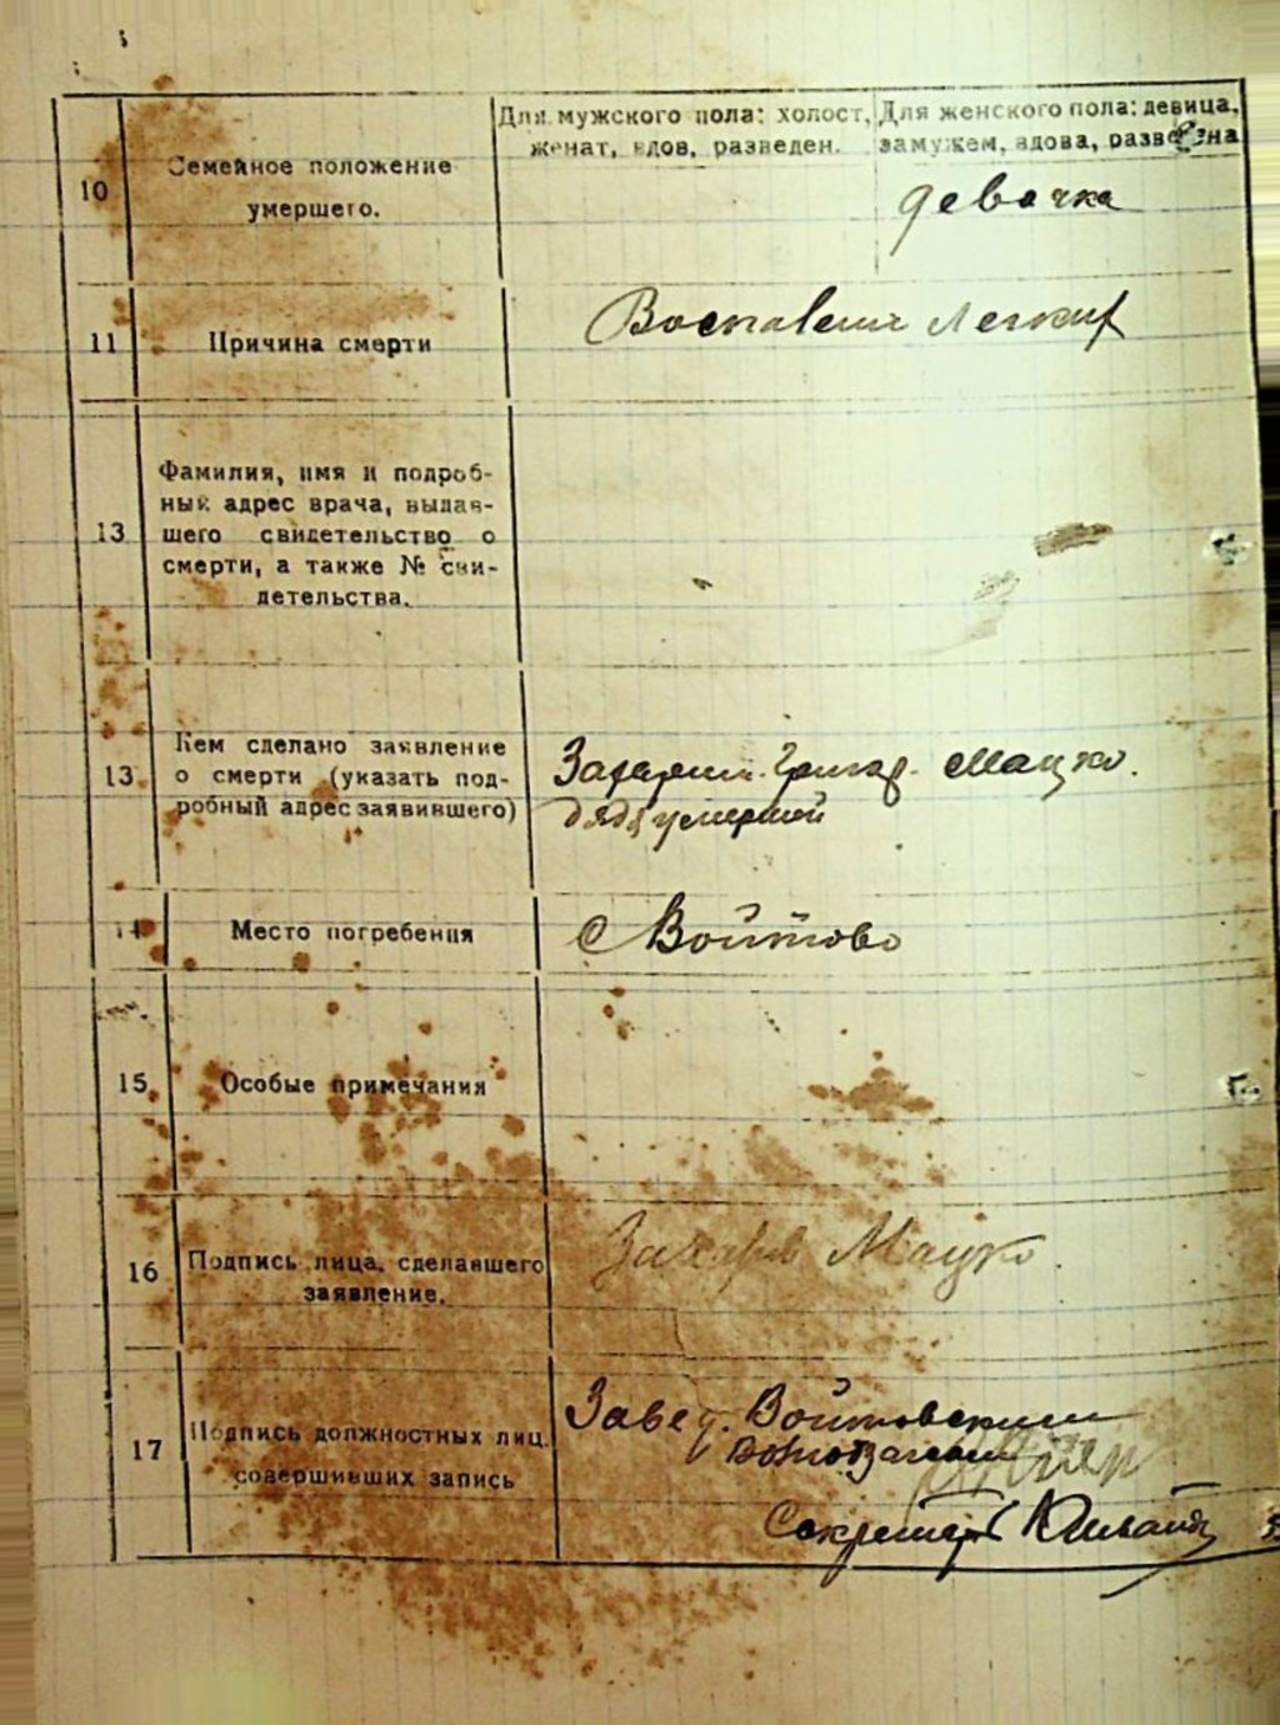 Для мужского пола: холост,
женат, вдов, разведен.
Для женского пола: девица,
замужем, вдова, разведена
10
Семейное положение
умершего.
девочка
11
Причина смерти
Воспаление легких
13
Фамилия, имя и подроб-
ный адрес врача, выдав-
шего свидетельство о
смерти, а также № сви-
детельства.
13.
Кем сделано заявление
о смерти (указать под-
робный адрес заявившего)
Григор. Мацко.
дядя умершей
14
Место погребения
с Войтово
15
Особые примечания
16
Подпись лица, сделавшего
заявление.
Мацко.
17
Подпись должностных лиц,
совершивших запись
Завед. Войтовским
Секретарь